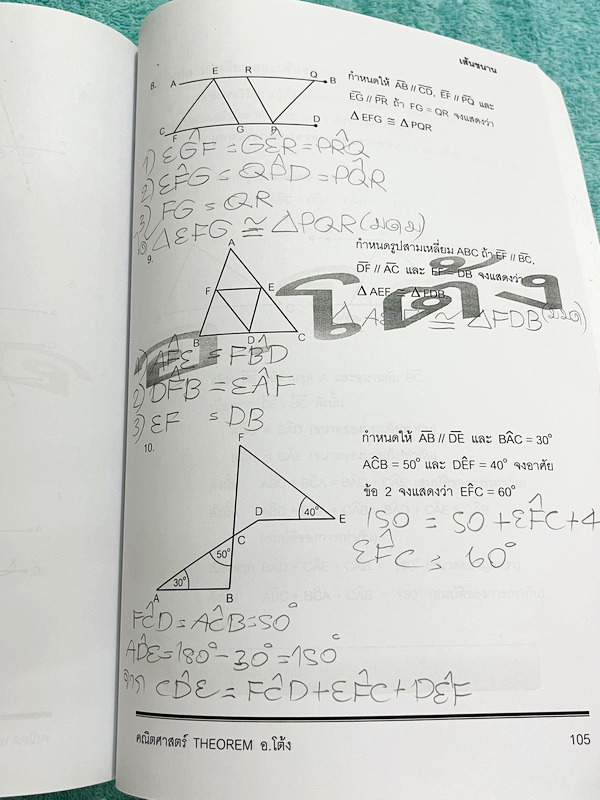 เส้นขนาน
8. A E R Q B
C F G P D
กำหนดให้ AB // CD, EF // PQ และ
EG // PR ถ้า FG = QR จงแสดงว่า
Δ EFG ≅ Δ PQR
1) EĜF = GÊR = PR̂Q
2) EF̂G = QP̂D = PQ̂R
3) FG = QR
ΔEFG ≅ ΔPQR (มดม)
9.
A
F E
B D C
กำหนดรูปสามเหลี่ยม ABC ถ้า EF // BC,
DF // AC และ EF = DB จงแสดงว่า
Δ AEF ≅ Δ FDB
โต้ง
ΔAEF ≅ ΔFDB
1) AF̂E = FB̂D
2) DF̂B = EÂF
3) EF = DB
10.
F
D
40° E
C
50°
30°
A B
กำหนดให้ AB // DE และ BÂC = 30°
AĈB = 50° และ DÊF = 40° จงอาศัย
ข้อ 2 จงแสดงว่า EF̂C = 60°
150 = 50 + EF̂C + 4
EF̂C = 60°
FĈD = AĈB = 50°
AD̂E = 180° - 30° = 150°
จาก CD̂E = FĈD + EF̂C + DÊF
คณิตศาสตร์ THEOREM อ.โต้ง 105